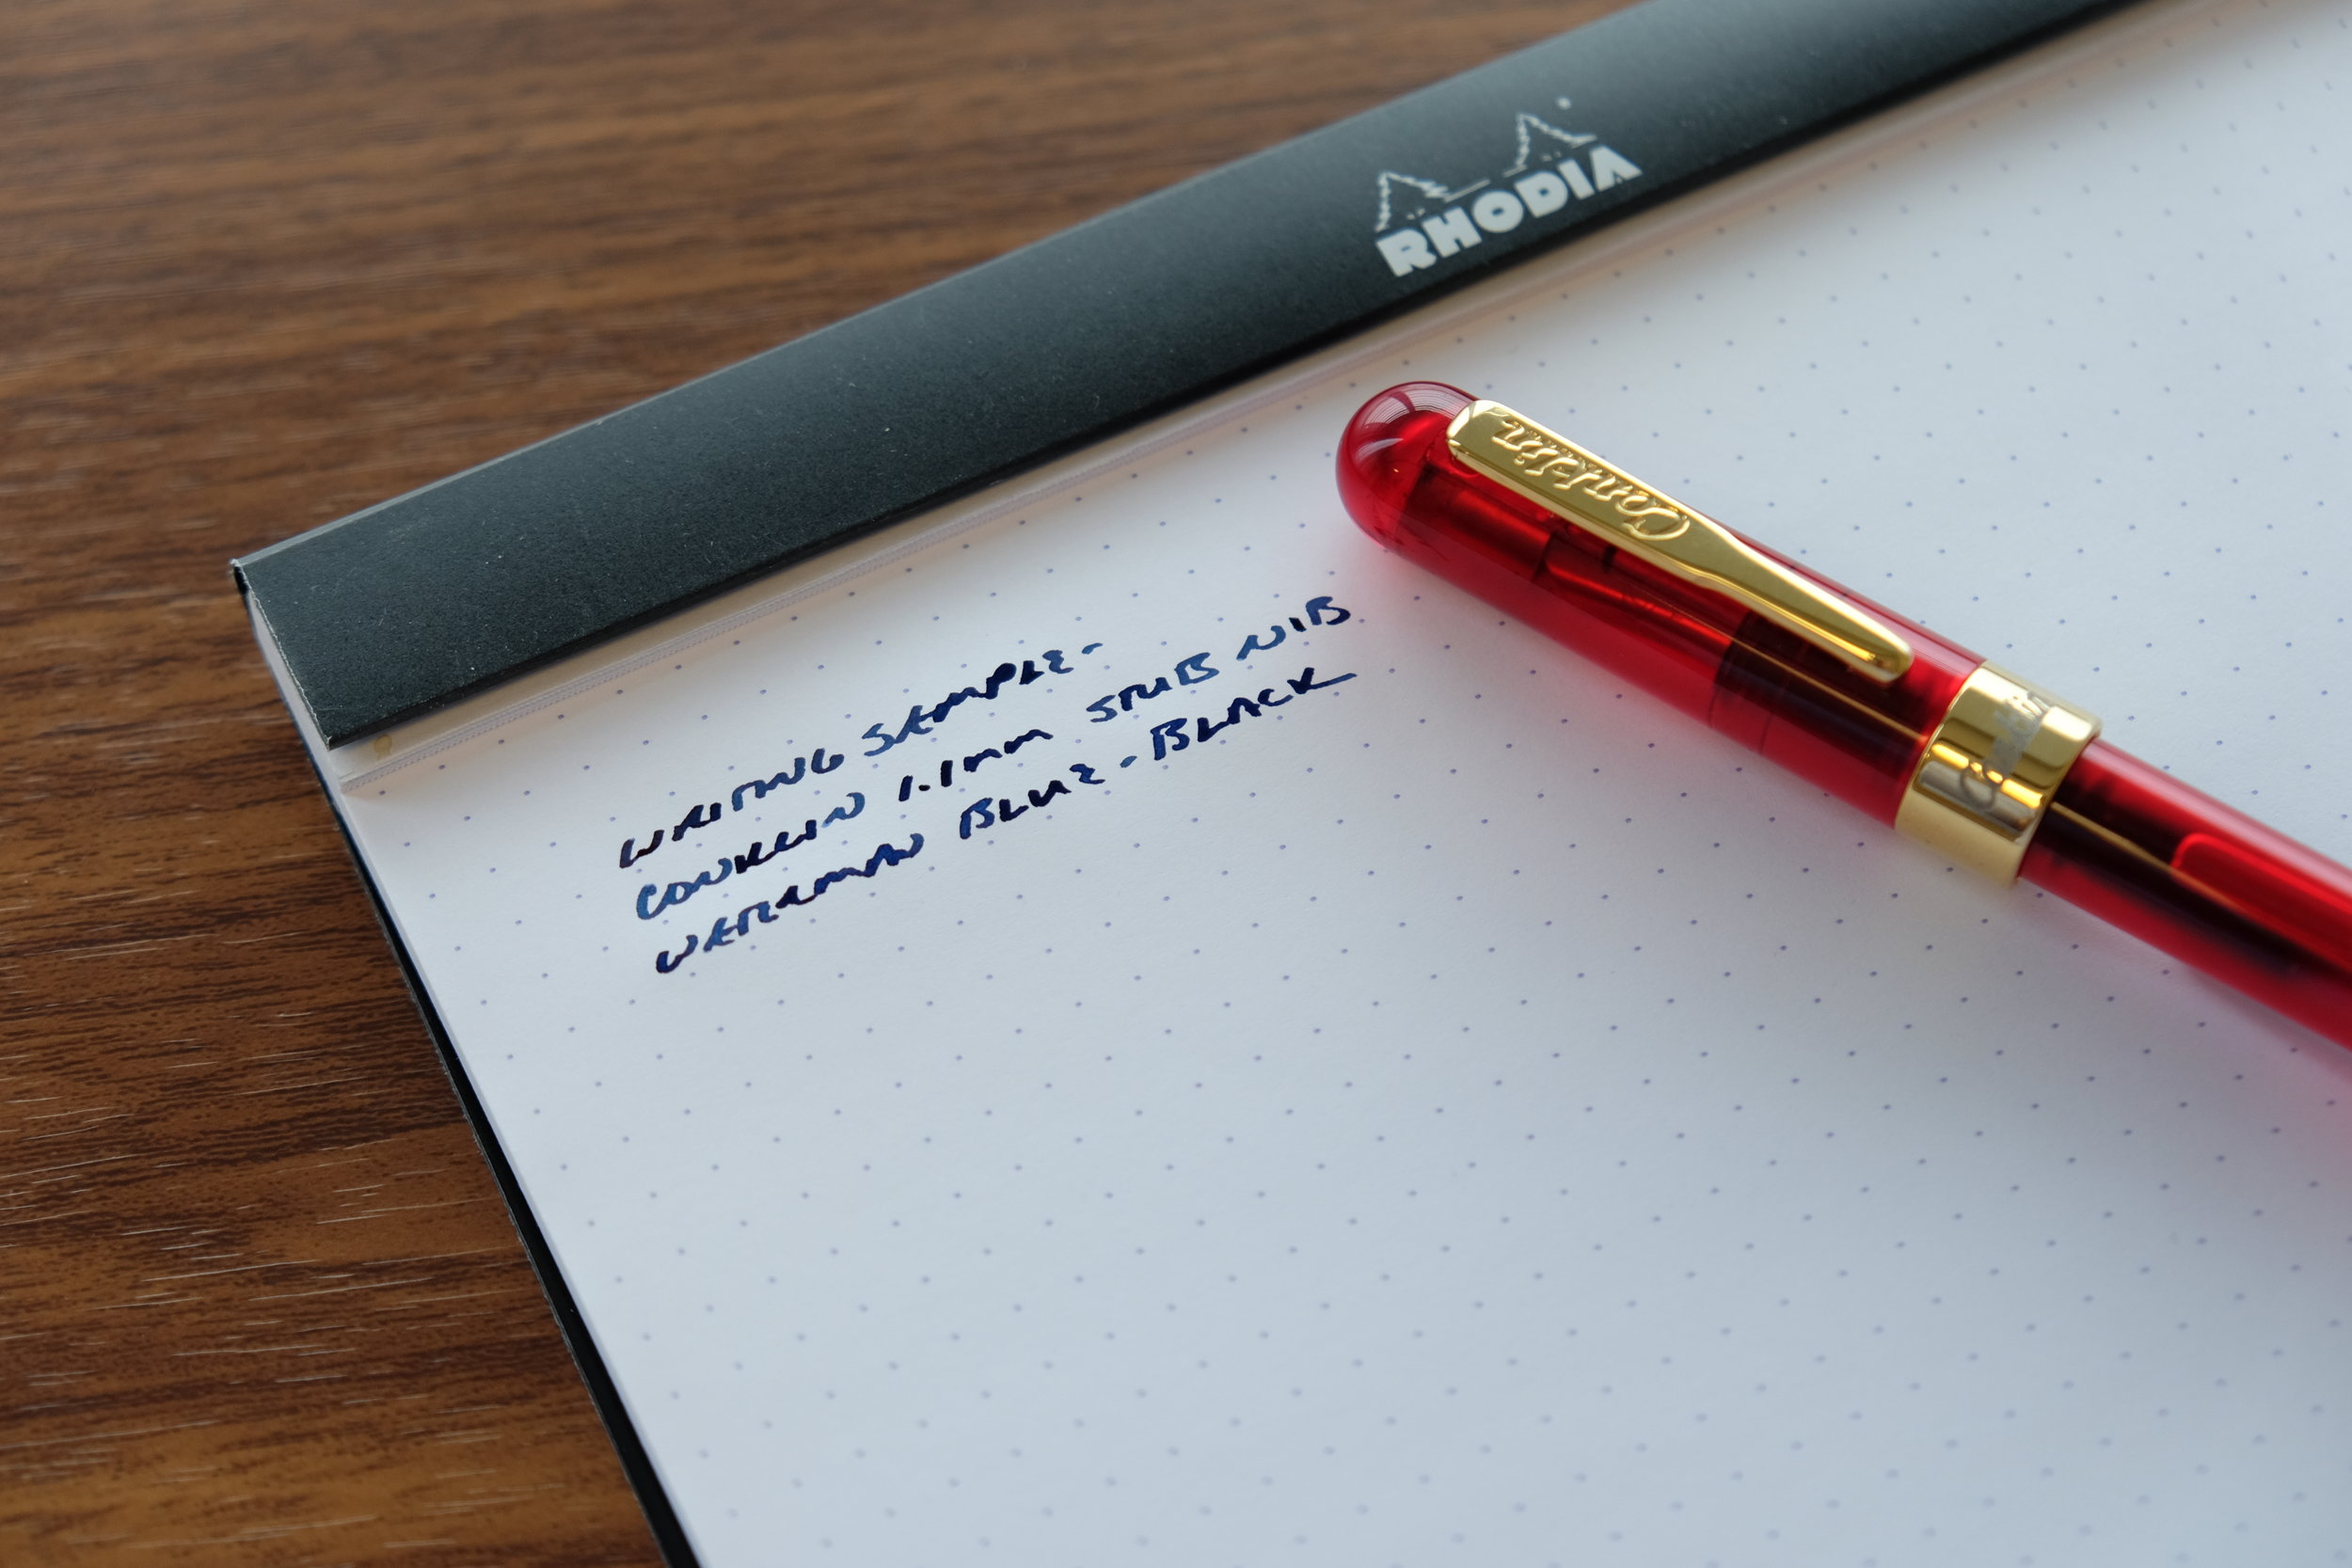 RHODIA
Conklin
Conklin
WRITING SAMPLE-
CONKLIN 1.1mm STUB NIB
WATERMAN BLUE-BLACK